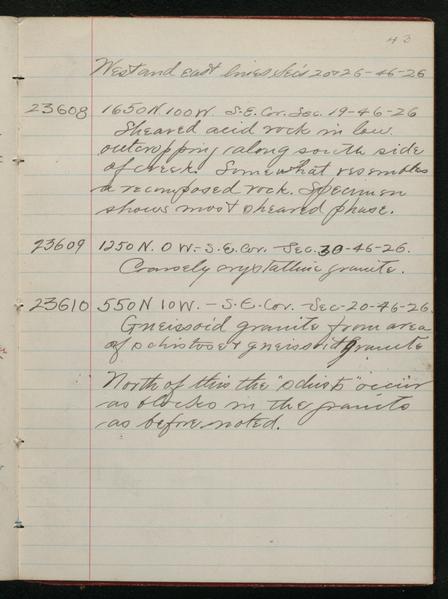 43
West and east lines Sec's 20 & 26-46-26
23608 1650 N. 100 W. S.E. Cor. Sec. 19-46-26
Sheared acid rock in low
outcropping along south side
of creek. Somewhat resembles
a recomposed rock. Specimen
shows most sheared phase.
23609 1250 N. 0 W. - S.E. Cor. - Sec. 30-46-26.
Coarsely crystalline granite.
23610 550 N 10 W. - S.E. Cor. - Sec-20-46-26.
Gneissoid granite from area
of schistose & gneissoid granite
North of this the "schists" occur
as blocks in the granite
as before noted.